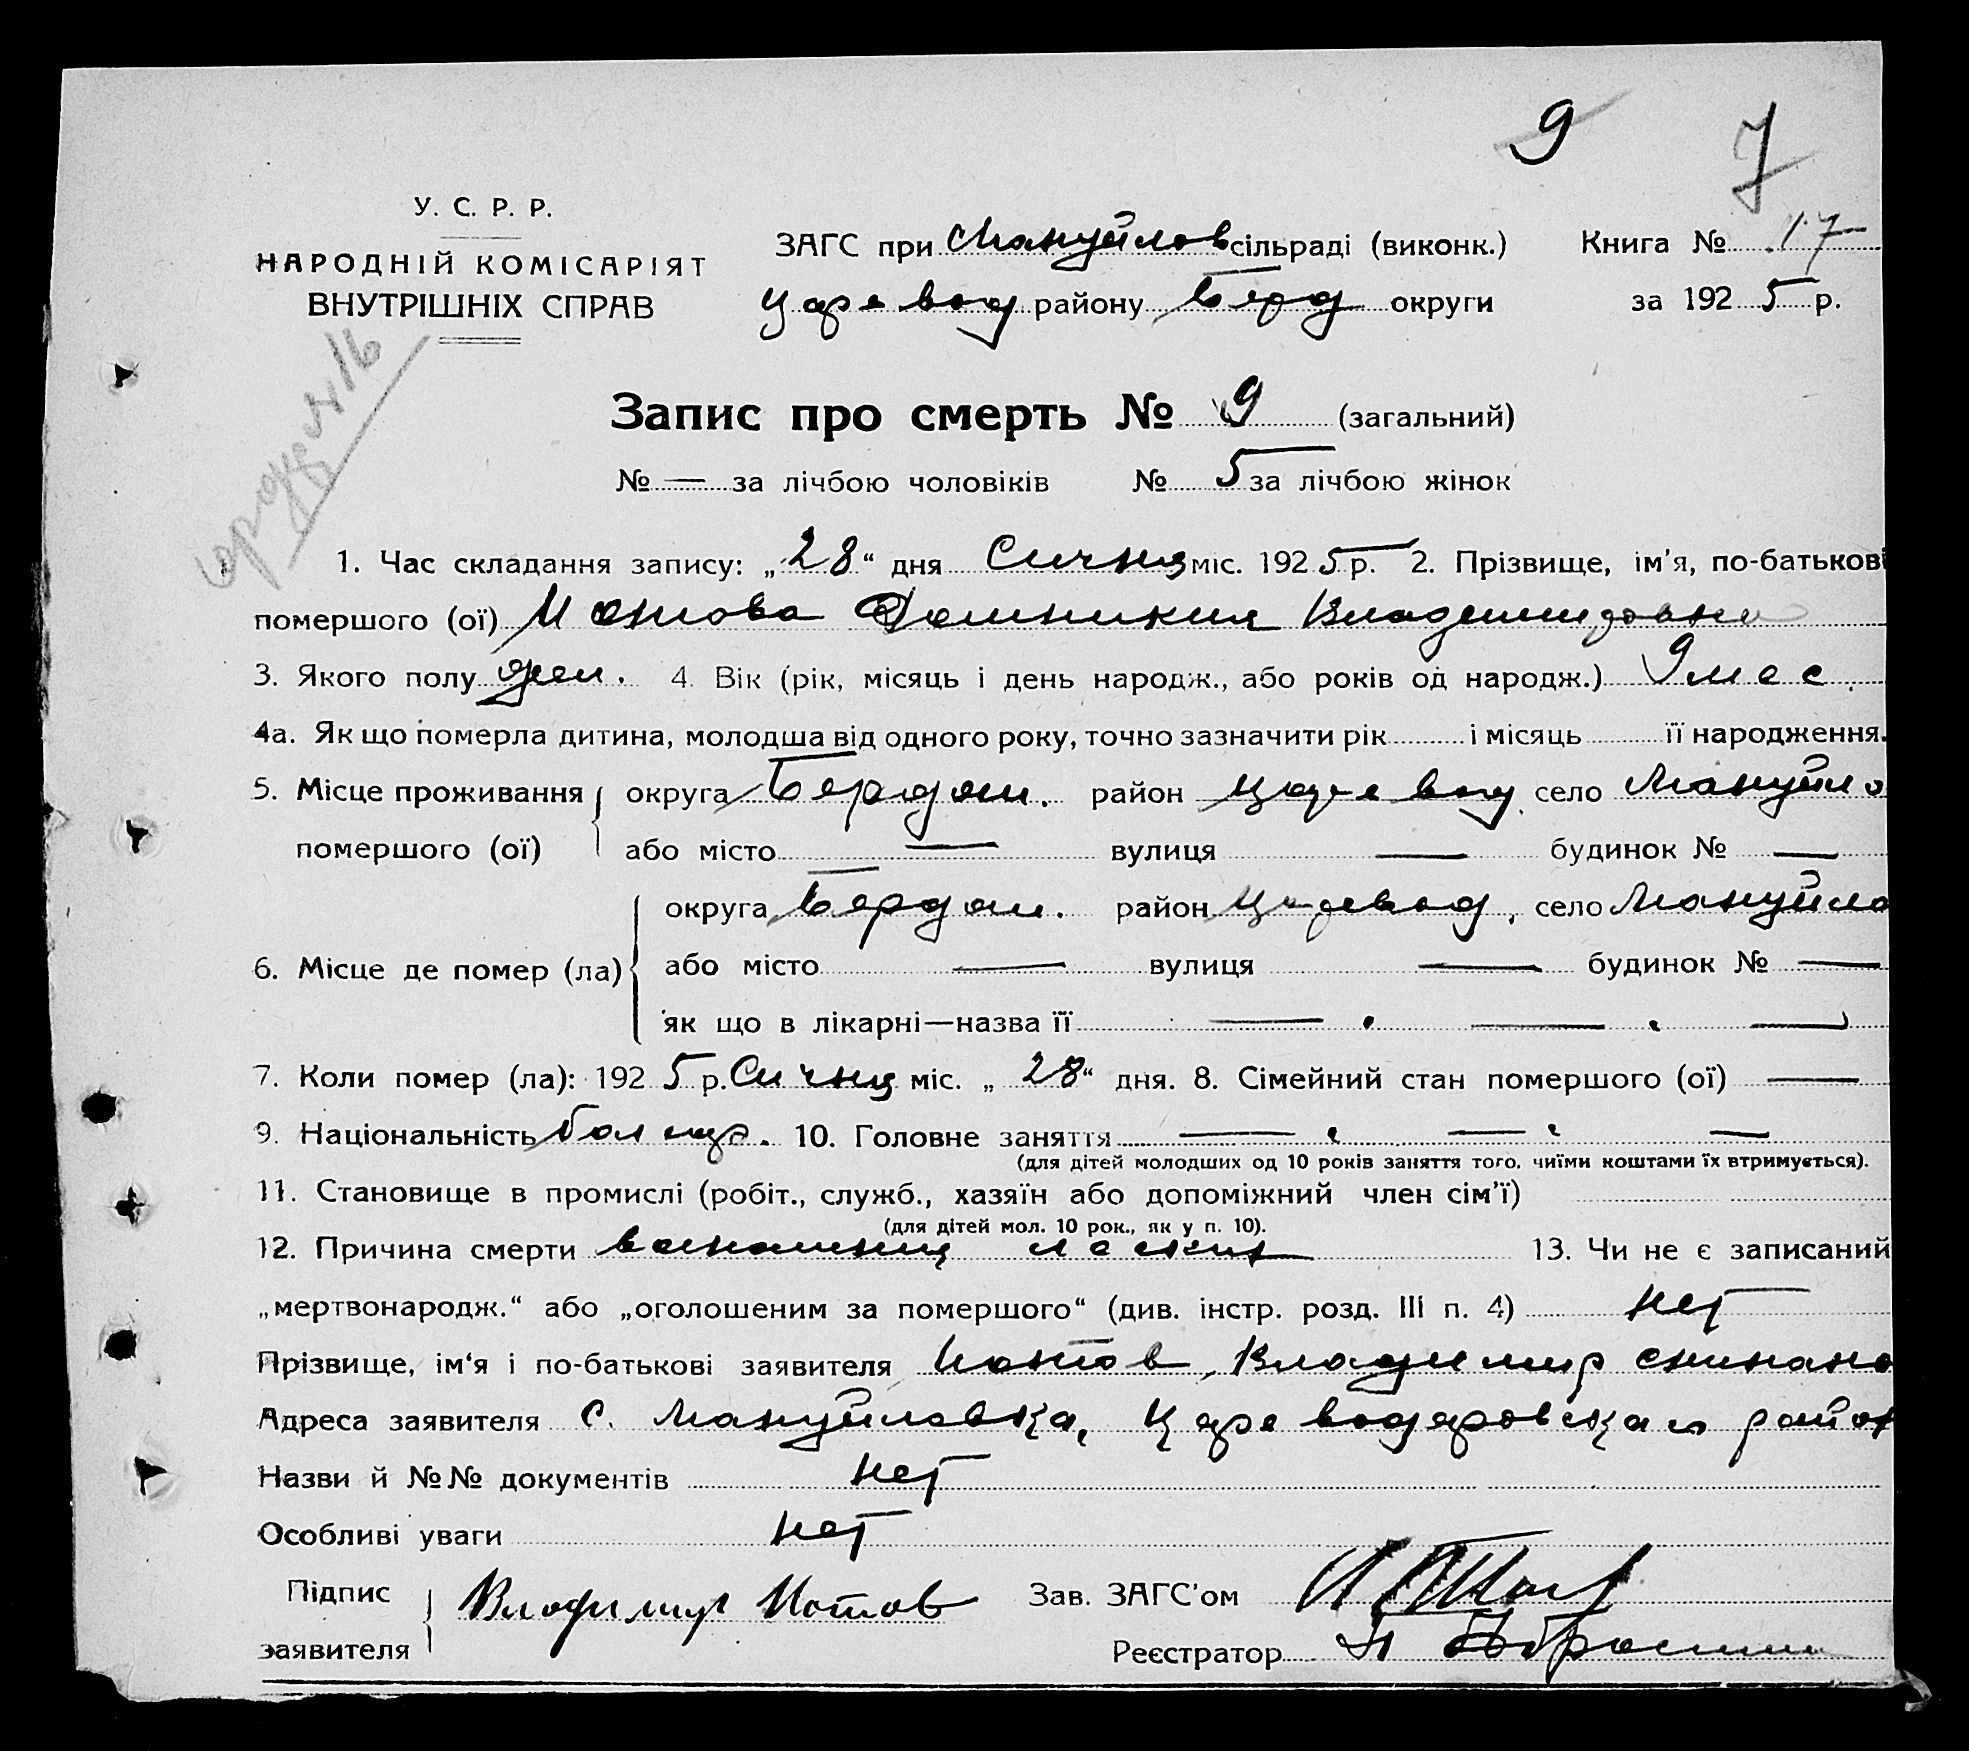 9 7
У. С. Р. Р.
НАРОДНІЙ КОМІСАРІЯТ
ВНУТРІШНІХ СПРАВ
ЗАГС при Мануйлов сільраді (виконк.) Книга № 17
Царевод району Берд округи за 192 5 р.
Запис про смерть № 9 (загальний)
№ — за лічбою чоловіків № 5 за лічбою жінок
1. Час складання запису: „28“ дня Сичня міс. 192 5 р. 2. Прізвище, ім'я, по-батькові
помершого (ої) Домникия Владимировна
3. Якого полу жен. 4. Вік (рік, місяць і день народж., або років од народж.) 9 мес.
4а. Як що померла дитина, молодша від одного року, точно зазначити рік і місяць її народження.
5. Місце проживання округа Бердян. район Царевод. село Мануйло
помершого (ої) або місто — вулиця — будинок № —
округа Бердян. район Царевод, село Мануйло
6. Місце де помер (ла) або місто — вулиця — будинок № —
як що в лікарні—назва її — . — . —
7. Коли помер (ла): 192 5 р. Сичня міс. „28“ дня. 8. Сімейний стан помершого (ої) —
9. Національність болгар. 10. Головне заняття — —  —
(для дітей молодших од 10 років заняття того, чиїми коштами їх втримується).
11. Становище в промислі (робіт., служб., хазяїн або допоміжний член сім'ї)
(для дітей мол. 10 рок., як у п. 10).
12. Причина смерти 13. Чи не є записаний
„мертвонародж.“ або „оголошеним за помершого“ (див. інстр. розд. III п. 4) нет
Прізвище, ім'я і по-батькові заявителя Владимир
Адреса заявителя с. Мануйловка, Цареводаровскаго район
Назви й №№ документів нет
Особливі уваги нет
Підпис Владимир Зав. ЗАГС'ом
заявителя Реєстратор